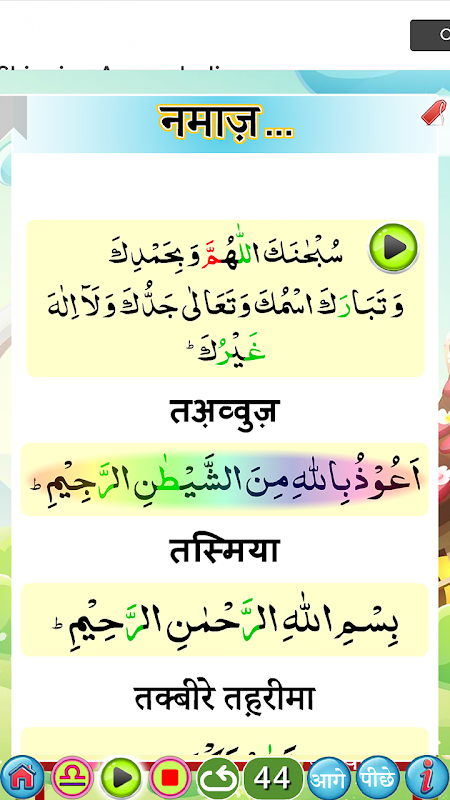 नमाज़...
سُبْحٰنَكَ اللّٰهُمَّ وَ بِحَمْدِكَ
وَ تَبَارَكَ اسْمُكَ وَ تَعَالٰى جَدُّكَ وَ لَآ اِلٰهَ
غَيْرُكَ ؕ
तअ़व्वुज़
اَعُوْذُ بِاللّٰهِ مِنَ الشَّيْطٰنِ الرَّجِيْمِ ؕ
तस्मिया
بِسْمِ اللّٰهِ الرَّحْمٰنِ الرَّحِيْمِ ؕ
तक्बीरे तह़रीमा
44 आगे पीछे i